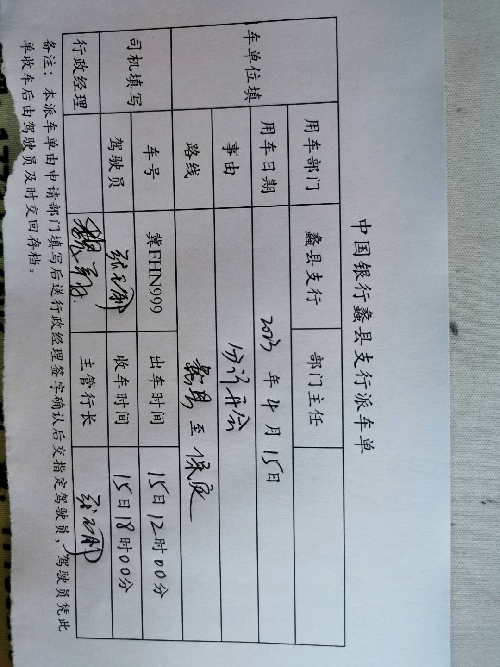 中国银行蠡县支行派车单
用车部门 蠡县支行 部门主任
用车日期 2023年4月15日
车单位填
事由 分行开会
路线 蠡县至保定
司机填写
车号 冀FHN999 出车时间 15日12时00分
驾驶员 收车时间 15日18时00分
行政经理 主管行长
备注：本派车单由申请部门填写后送行政经理签字确认后交指定驾驶员，驾驶员凭此
单收车后由驾驶员及时交回存档。